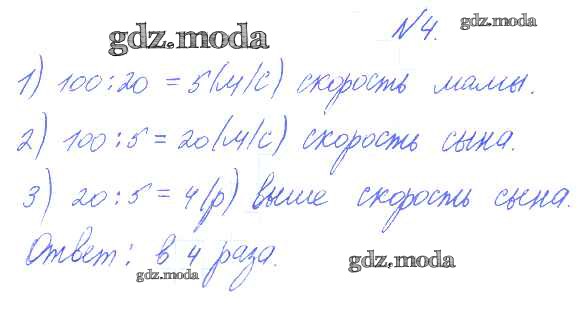 №4. gdz.moda
gdz.moda
1) 100:20 = 5(м/с) скорость мамы.
2) 100:5 = 20(м/с) скорость сына.
3) 20:5 = 4(р) выше скорость сына.
Ответ: в 4 раза.
gdz.moda gdz.moda